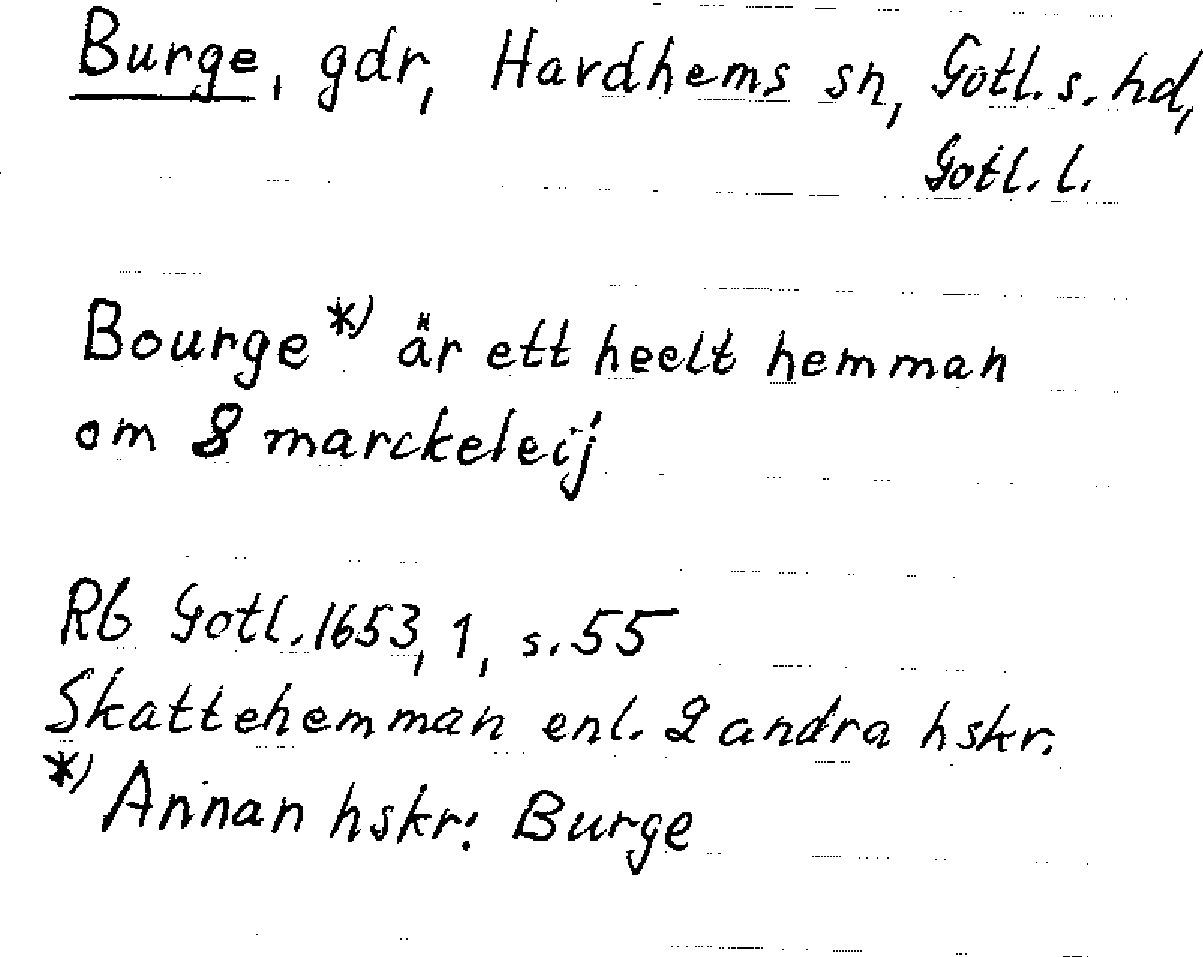 Burge, gdr, Hardhems sn, Gotl. s. hd,
Gotl. l.
Bourge *) är ett heelt hemman
om 8 marckeleij
Rb Gotl. 1653, 1, s. 55
Skattehemman enl. 2 andra hskr.
*) Annan hskr: Burge